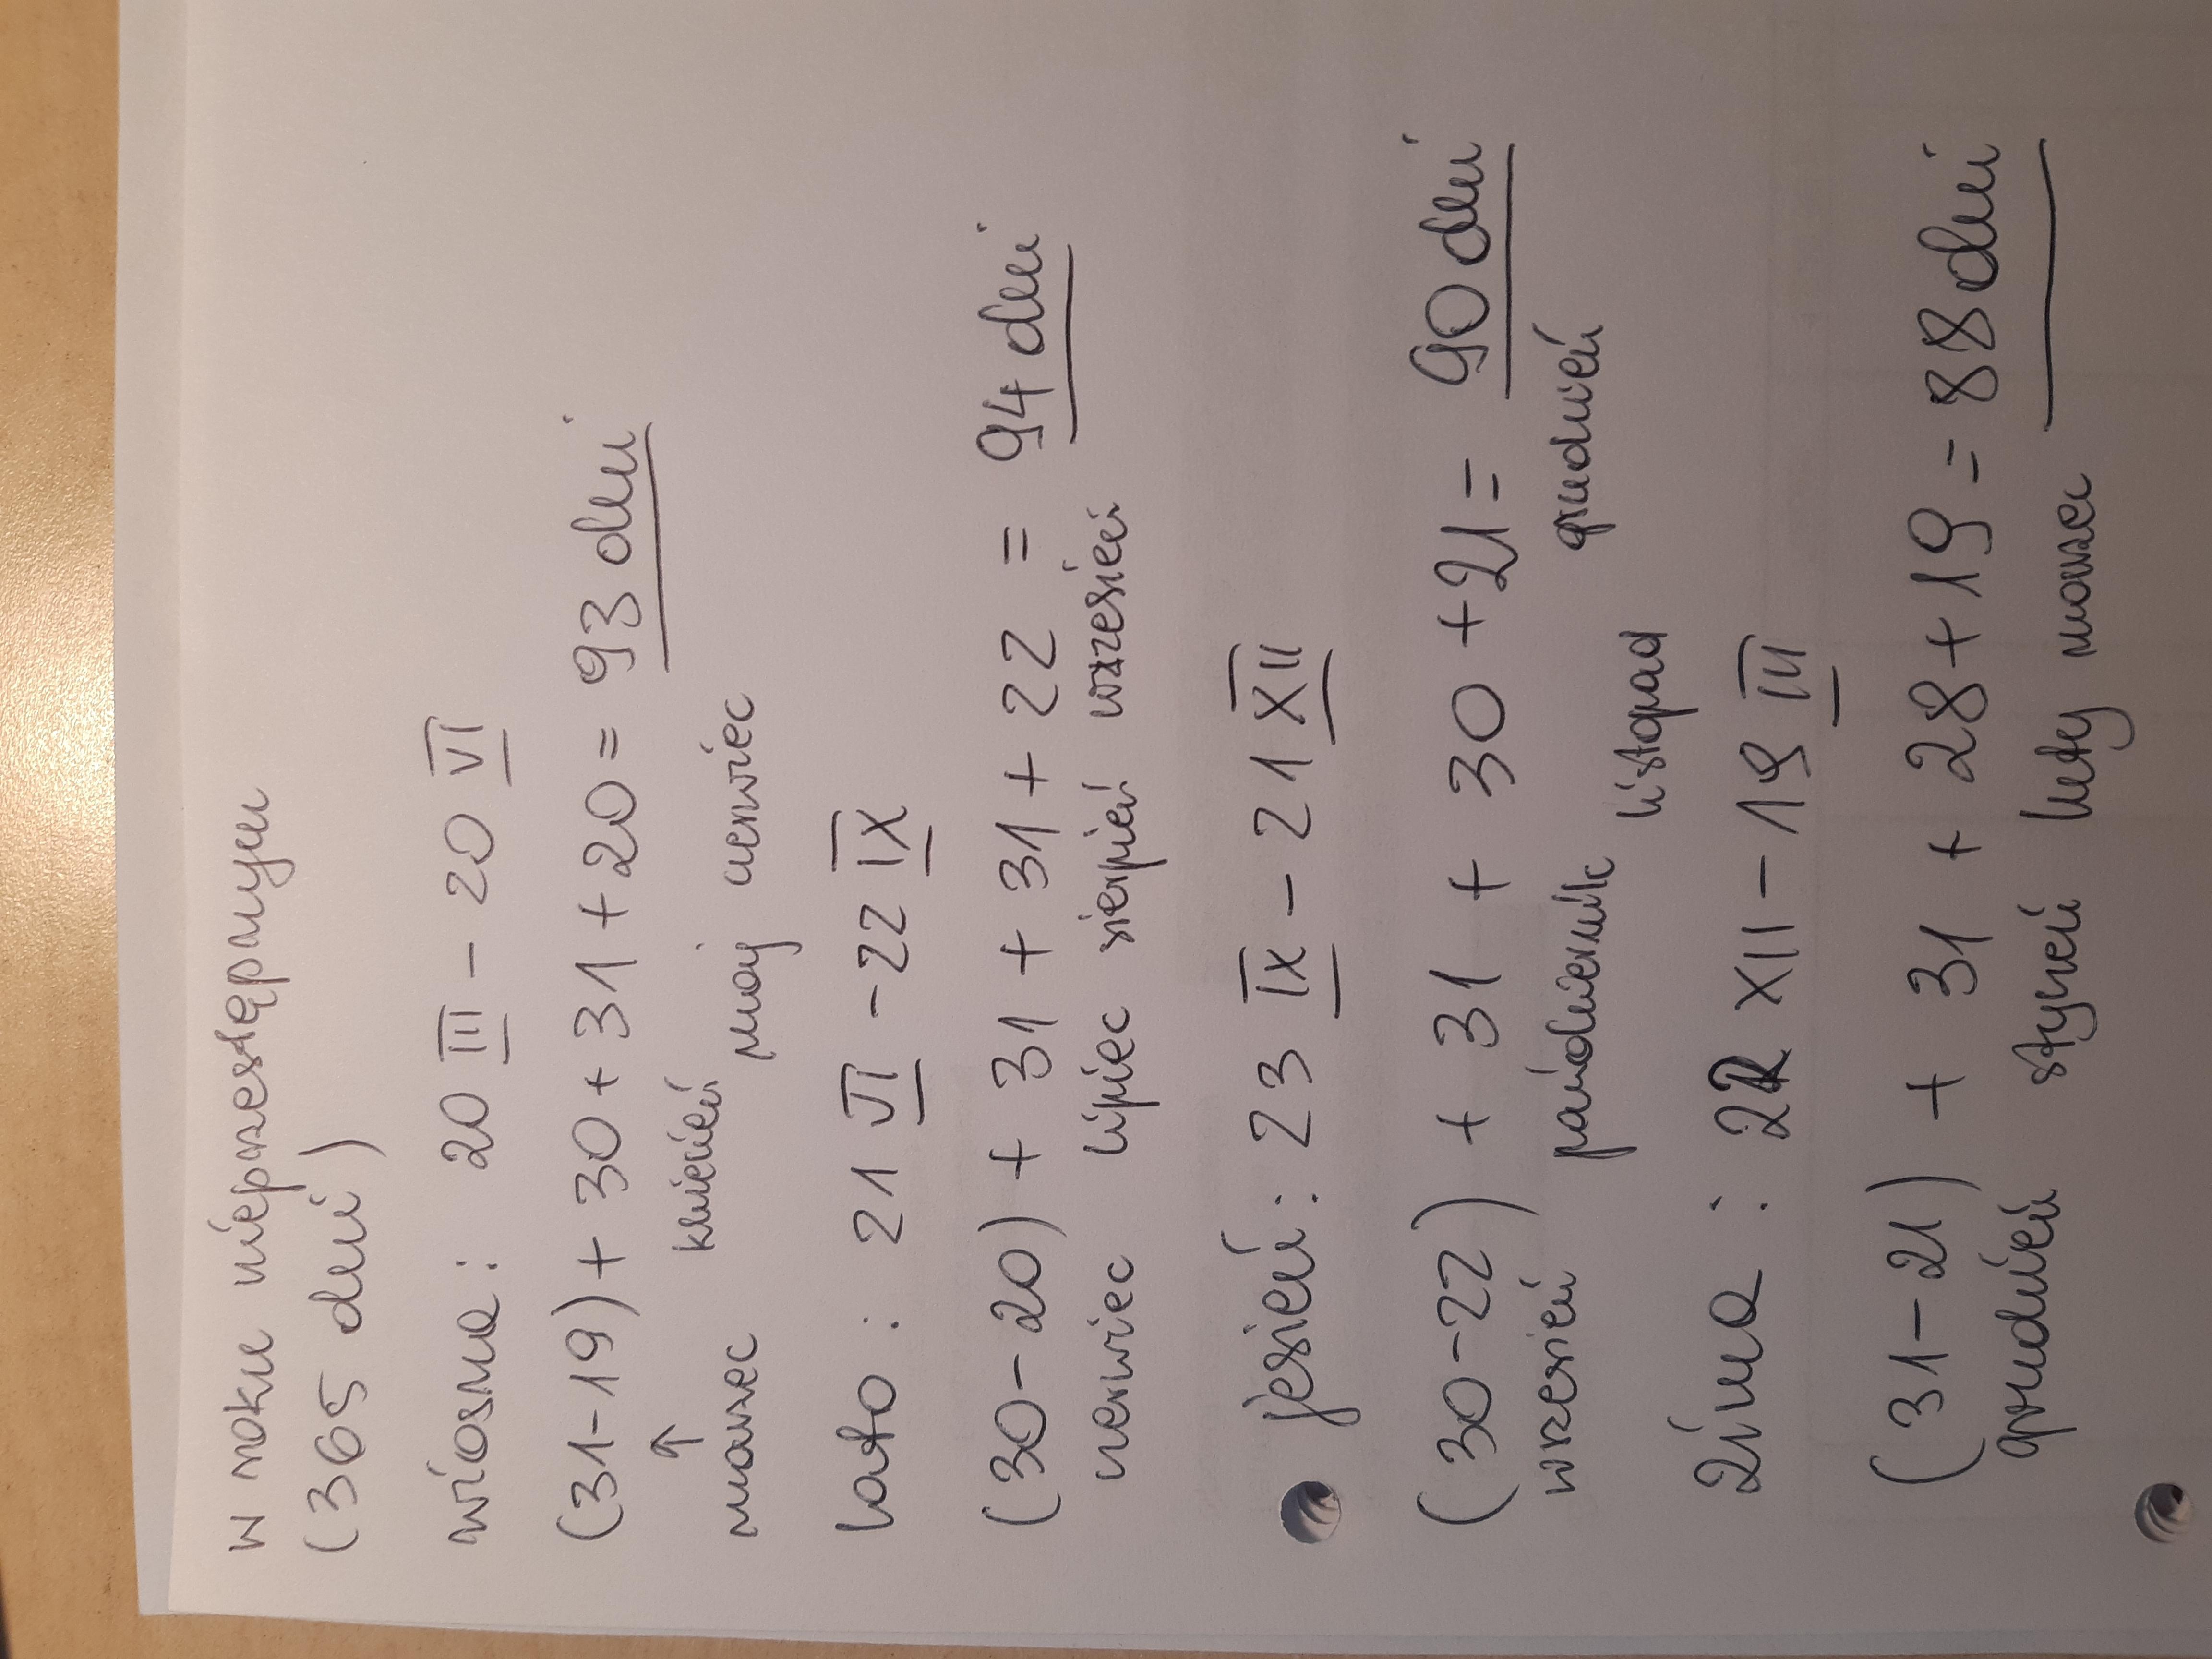 w roku nieprzestępnym
(365 dni)
wiosna: 20 III - 20 VI
(31-19) + 30 + 31 + 20 = 93 dni
↑ kwiecień
marzec maj czerwiec
lato: 21 VI - 22 IX
(30-20) + 31 + 31 + 22 = 94 dni
czerwiec lipiec sierpień wrzesień
jesień: 23 IX - 21 XII
(30-22) + 31 + 30 + 21 = 90 dni
wrzesień październik listopad grudzień
zima: 22 XII - 19 III
(31-21) + 31 + 28 + 19 = 88 dni
grudzień styczeń luty marzec